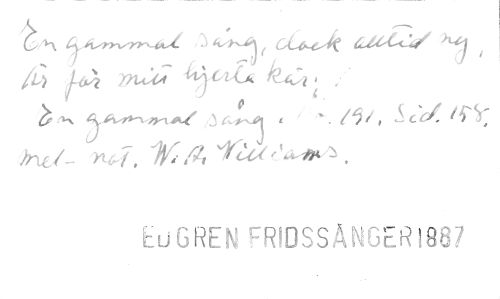 En gammal sång, dock alltid ny,
Är för mitt hjerta kär;
En gammal sång. No. 191. Sid. 158,
mel- not. W. A. Williams.
EDGREN FRIDSSÅNGER 1887